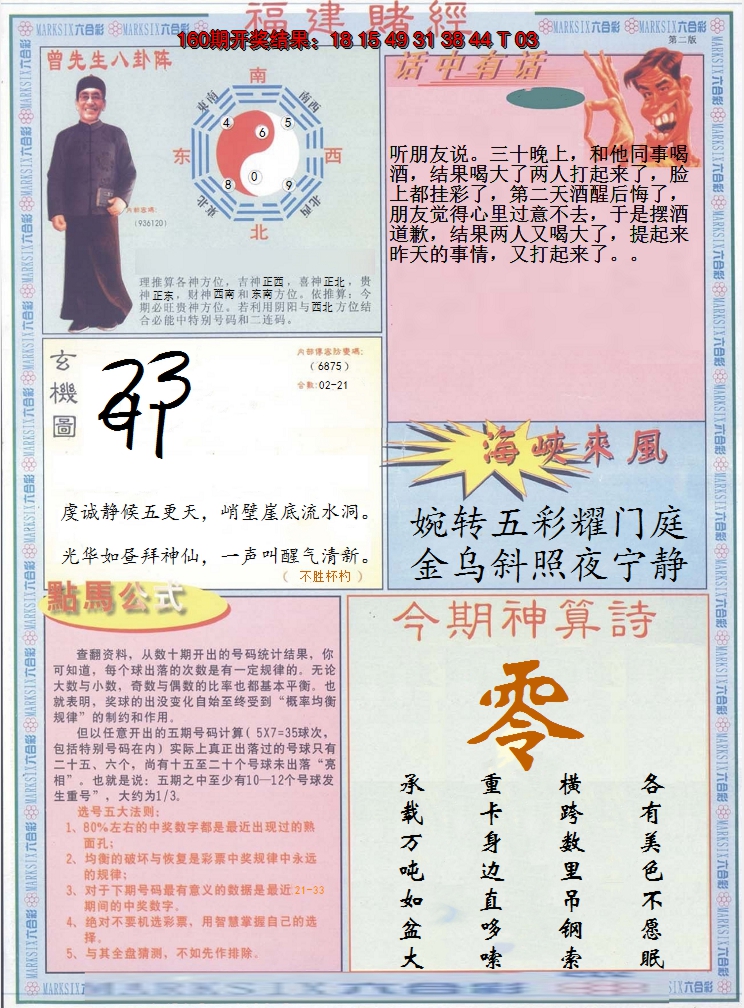 福建賭經
160期开奖结果：18 15 49 31 38 44 T 03
第二版
MARKSIX六合彩
曾先生八卦阵
南
东南
南西
4
5
6
东
西
0
8
9
東北
北西
北
内部密碼:
(936120)
理推算各神方位，吉神正西，喜神正北，贵
神正东，财神西南和东南方位。依推算：今
期必旺贵神方位。若利用阴阳与西北方位结
合必能中特别号码和二连码。
话中有话
听朋友说。三十晚上，和他同事喝
酒，结果喝大了两人打起来了，脸
上都挂彩了，第二天酒醒后悔了，
朋友觉得心里过意不去，于是摆酒
道歉，结果两人又喝大了，提起来
昨天的事情，又打起来了。。
玄機圖
内部傳密防變碼:
(6875)
合數:02-21
虔诚静候五更天，峭壁崖底流水洞。
光华如昼拜神仙，一声叫醒气清新。
（ 不胜杯杓 ）
海峽來風
婉转五彩耀门庭
金乌斜照夜宁静
點馬公式
查翻资料，从数十期开出的号码统计结果，你
可知道，每个球出落的次数是有一定规律的。无论
大数与小数，奇数与偶数的比率也都基本平衡。也
就表明，奖球的出没变化自始至终受到“概率均衡
规律”的制约和作用。
但以任意开出的五期号码计算( 5X7=35球次,
包括特别号码在内) 实际上真正出落过的号球只有
二十五、六个，尚有十五至二十个号球未出落“亮
相”。也就是说：五期之中至少有10—12个号球发
生重号”，大约为1/3。
选号五大法则：
1、80%左右的中奖数字都是最近出现过的熟
面孔;
2、均衡的破坏与恢复是彩票中奖规律中永远
的规律;
3、对于下期号码最有意义的数据是最近21-33
期间的中奖数字。
4、绝对不要机选彩票，用智慧掌握自己的选
择。
5、与其全盘猜测，不如先作排除。
今期神算詩
零
各有美色不愿眠
横跨数里吊钢索
重卡身边直哆嗦
承载万吨如盆大